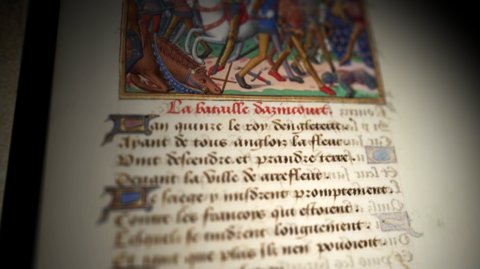 La bataille dazincourt.
Lan quinze le roy dengleterre
Ayant de tous anglois la fleur
Vint descendre et prandre terre
Deuant la ville de arrefleur
Le siege y misdrent promptement
Contre les francoys qui estoient
Lesquelz se tindrent longuement
Et tant que plus ilz nen pouoient